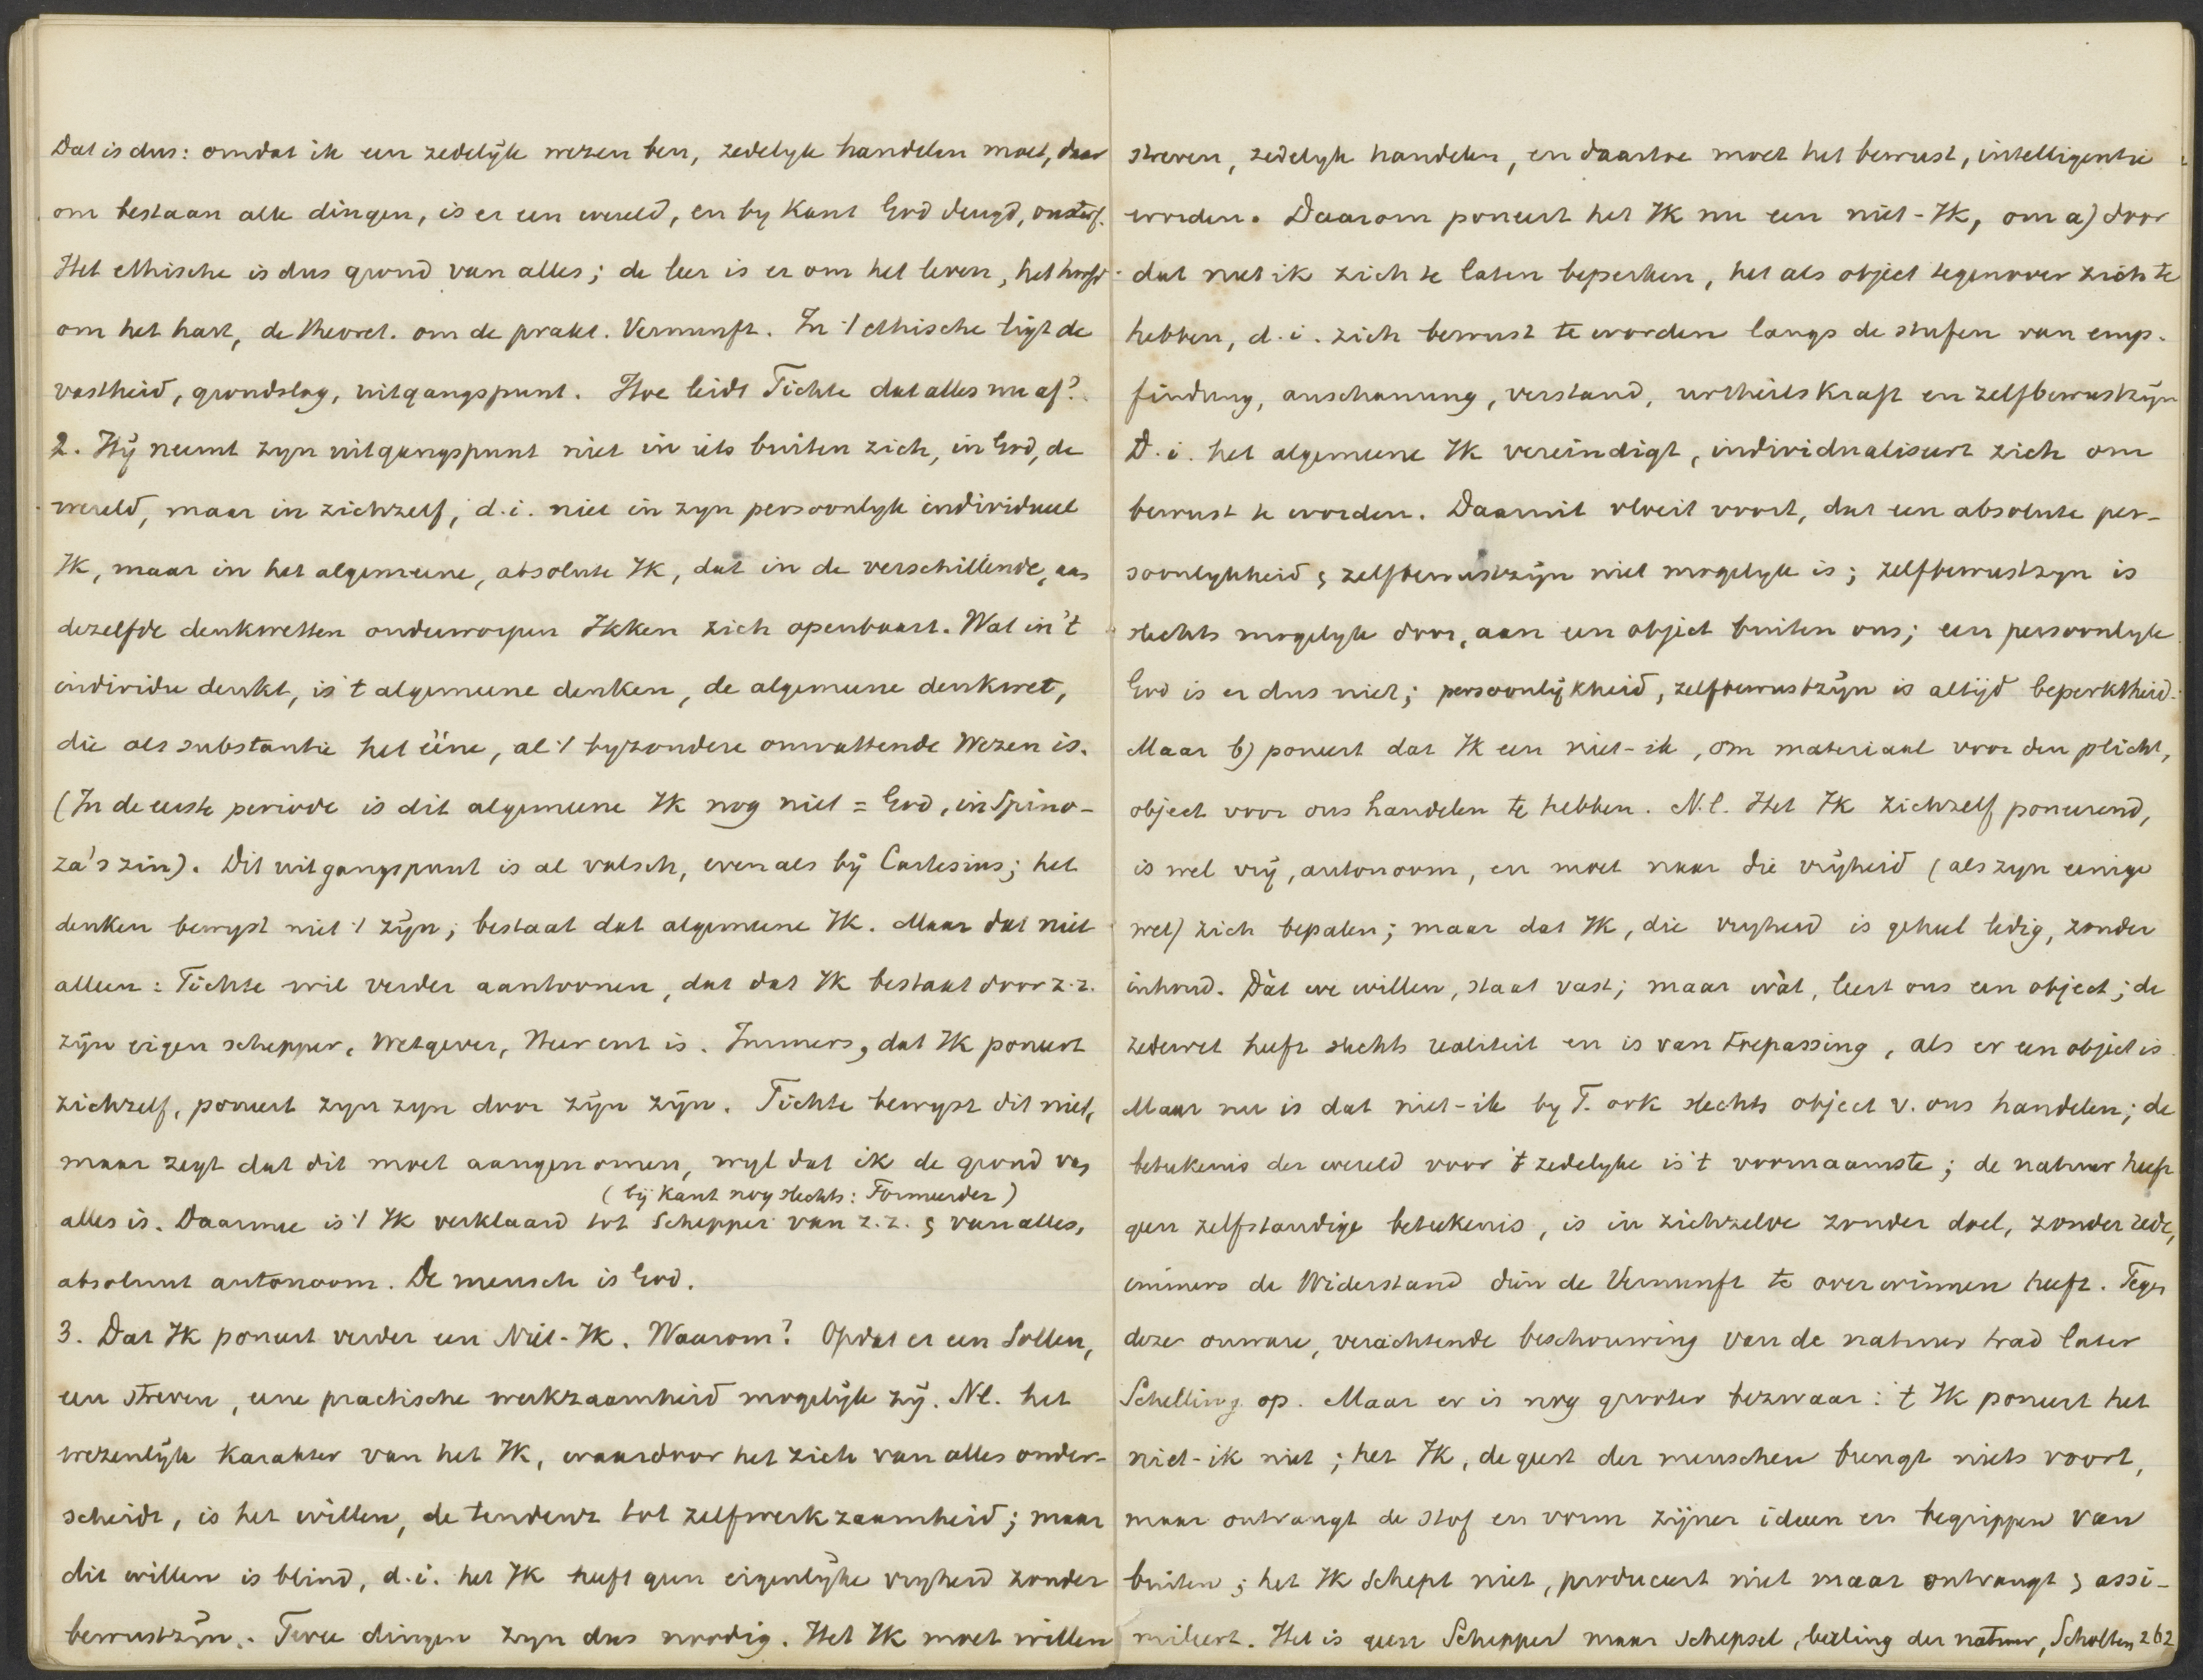 Dat is dus: omdat ik een zedelijk wezen ben, zedelyk handelen moet, daar
om bestaan alle dingen, is er een wereld, en by Kant God deugd, onsterf.
Het ethische is dus grond van alles; de leer is er om het leven, het hoofd
om het hart, de theoret. om de prakt. Vernunft. In 't ethische ligt de
vastheid, grondslag, uitgangspunt. Hoe leidt Fichte dat alles nu af?
2. Hij neemt zyn uitgangspunt niet in iets buiten zich, in God, de
wereld, maar in zichzelf, d.i. niet in zyn persoonlyk individueel
Ik, maar in het algemeene, absolute Ik, dat in de verschillende, aan
dezelfde denkwetten onderworpen Ikken zich openbaart. Wat in 't
individu denkt, is 't algemeene denken, de algemeene denkwet,
die als substantie het ééne, al 't byzondere omvattende Wezen is.
(In de eerste periode is dit algemeene Ik nog niet = God, in Spino-
za's zin). Dit uitgangspunt is al valsch, evenals bij Cartesius; het
denken bewyst niet 't zijn; bestaat dat algemeene Ik. Maar dat niet
alleen: Fichte wil verder aantoonen, dat dat Ik bestaat door z.z.
zijn eigen schepper, Wetgever, Heer enz is. Immers, dat Ik poneert
zichzelf, poneert zyn zyn door zijn zijn. Fichte bewyst dit niet,
maar zegt dat dit moet aangenomen, wyl dat ik de grond van
(bij Kant nog slechts: Formeerder)
alles is. Daarmee is 't Ik verklaard tot Schepper van z.z. & van alles,
absoluut autonoom. De mensch is God.
3. Dat Ik poneert verder een Niet-Ik. Waarom? Opdat er een Sollen,
een streven, eene practische werkzaamheid mogelijk zij. Nl. het
wezenlijk karakter van het Ik, waardoor het zich van alles onder-
scheidt, is het willen, de tendenz tot zelfwerkzaamheid; maar
dit willen is blind, d.i. het Ik heeft geen eigenlijke vryheid zonder
bewustzijn. Twee dingen zyn dus noodig. Het Ik moet willen
streven, zedelyk handelen, en daartoe moet het bewust, intelligentie
worden. Daarom poneert het Ik nu een niet-Ik, om a) door
dat niet ik zich te laten beperken, het als object tegenover zich te
hebben, d.i. zich bewust te worden langs de stufen van emp-
findung, anschauung, verstand, urtheilskraft en zelfbewustzijn
D.i. het algemeene Ik vereindigt, individualiseert zich om
bewust te worden. Daaruit vloeit voort, dat een absolute per-
soonlykheid & zelfbewustzijn niet mogelyk is; zelfbewustzyn is
slechts mogelyk door, aan een object buiten ons; een persoonlyk
God is er dus niet; persoonlijkheid, zelfbewustzijn is altijd beperktheid.
Maar b) poneert dat Ik een niet-ik, om materiaal voor den plicht,
object voor ons handelen te hebben. N.l. Het Ik zichzelf poneerend,
is wel vrij, autonoom, en moet naar die vrijheid (als zyn eenige
wet) zich bepalen; maar dat Ik, die vryheid is geheel ledig, zonder
inhoud. Dàt we willen, staat vast; maar wàt, leert ons een object; de
zedewet heeft slechts realiteit en is van toepassing, als er een object is
Maar nu is dat niet-ik by F. ook slechts object v. ons handelen; de
beteekenis der wereld voor 't zedelyke is 't voornaamste; de natuur heeft
geen zelfstandige beteekenis, is in zichzelve zonder doel, zonder rede,
immers de Widerstand dien de Vernunft te overwinnen heeft. Tegen
deze onware, verachtende beschouwing van de natuur trad later
Schelling op. Maar er is nog grooter bezwaar: 't Ik poneert het
niet-ik niet; het Ik, de geest der menschen brengt niets voort,
maar ontvangt de stof en vorm zijner ideen en begrippen van
buiten; het Ik schept niet, produceert niet maar ontvangt & assi-
mileert. Het is geen Schepper maar schepsel, leerling der natuur, Scholten 262